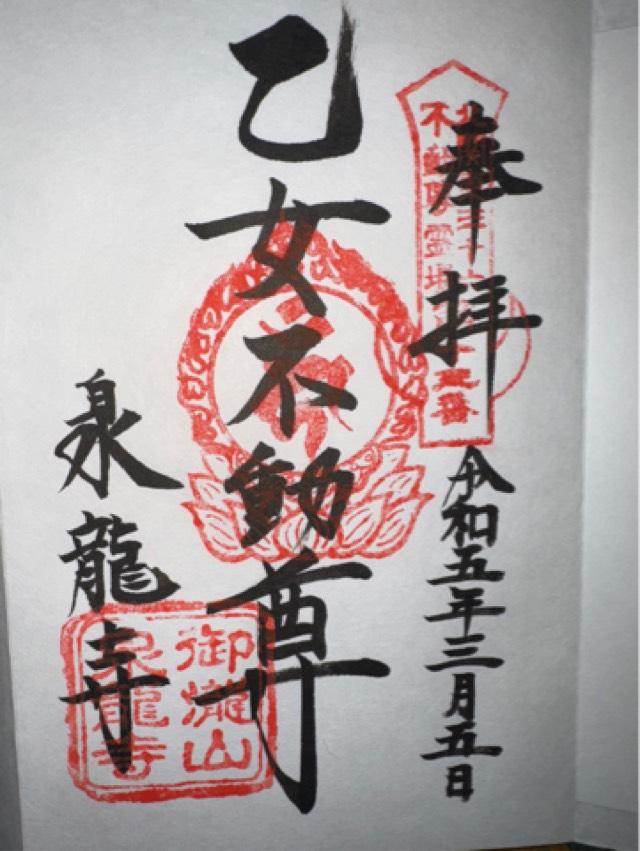 奉拝
令和五年三月五日
乙女不動尊
泉龍寺
不動尊霊場
御瀧山
泉龍寺